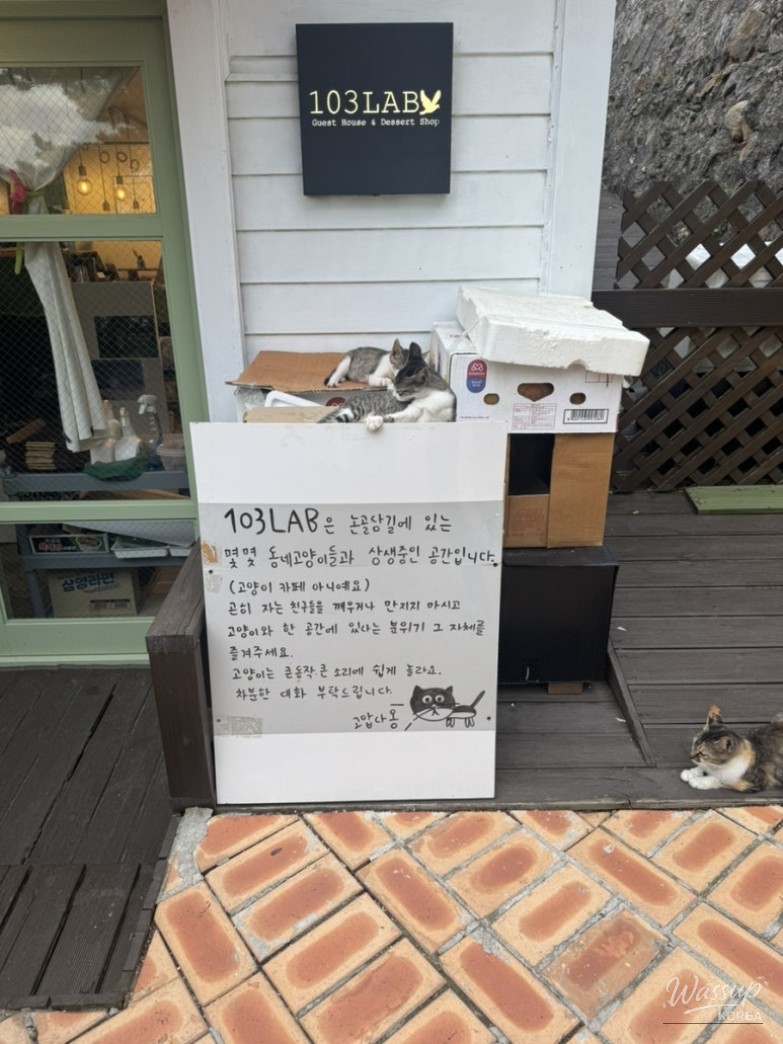 103LAB
Guest House & Dessert Shop
103LAB은 논골담길에 있는
몇몇 동네고양이들과 상생중인 공간입니다.
(고양이 카페 아니예요)
곤히 자는 친구들을 깨우거나 만지지 마시고
고양이와 한 공간에 있다는 분위기 그 자체를
즐겨주세요.
고양이는 큰동작·큰소리에 쉽게 놀라요.
차분한 대화 부탁드립니다.
고맙다옹
삼양라면
Wassup
KOREA